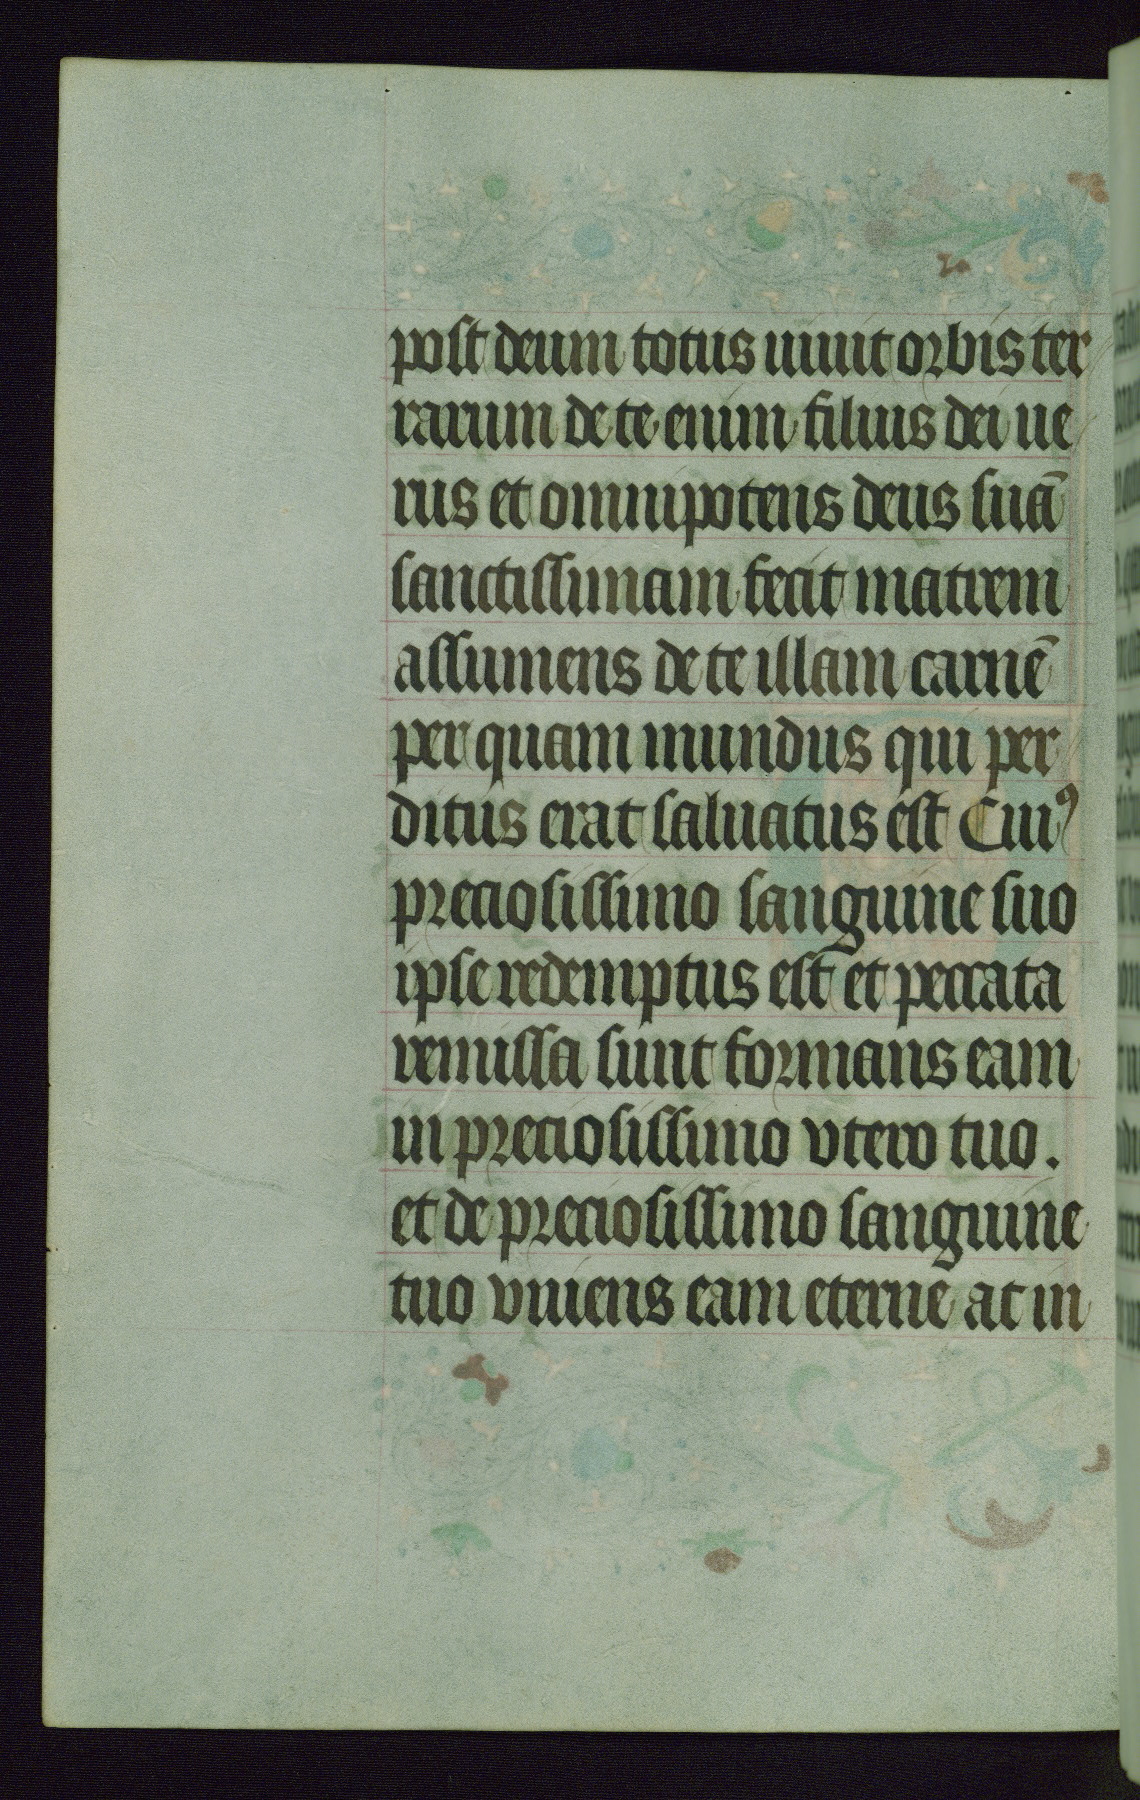 post deum totus uiuit orbis ter
rarum de te enim filius dei ue
rus et omnipotens deus suā
sanctissimam fecit matrem
assumens de te illam carnē
per quam mundus qui per
ditus erat saluatus est Cuiꝰ
preciosissimo sanguine suo
ipse redemptus est et peccata
remissa sunt formans eam
in preciosissimo vtero tuo.
et de preciosissimo sanguine
tuo vniens eam eterne ac in